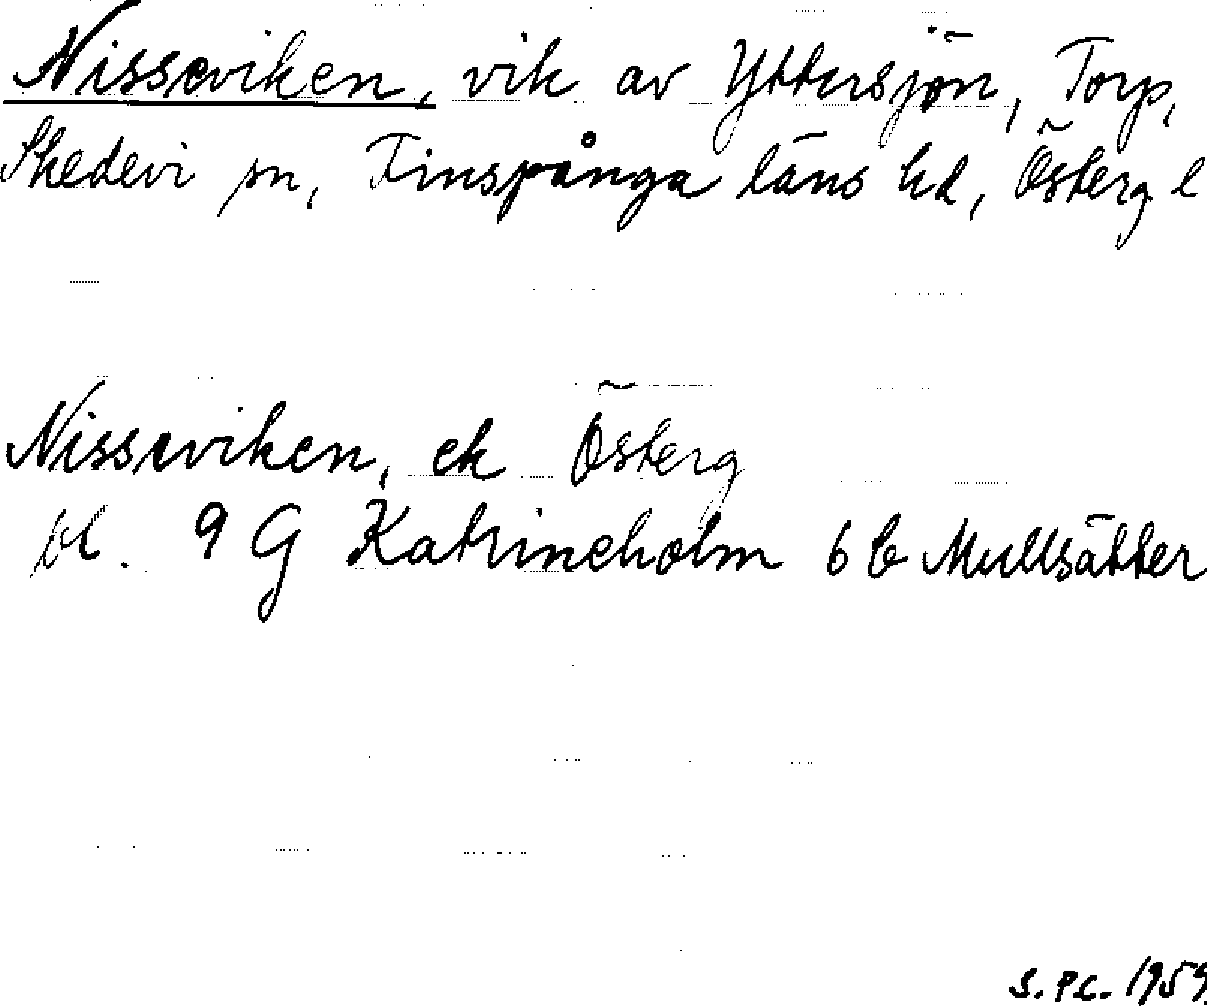 Nisseviken, vik av Yttersjön, Torp,
Skedevi sn, Finspånga läns hd, Österg l
Nisseviken, ek Österg
bl. 9 G Katrineholm 6 b Mullsätter
S. P.C. 1959